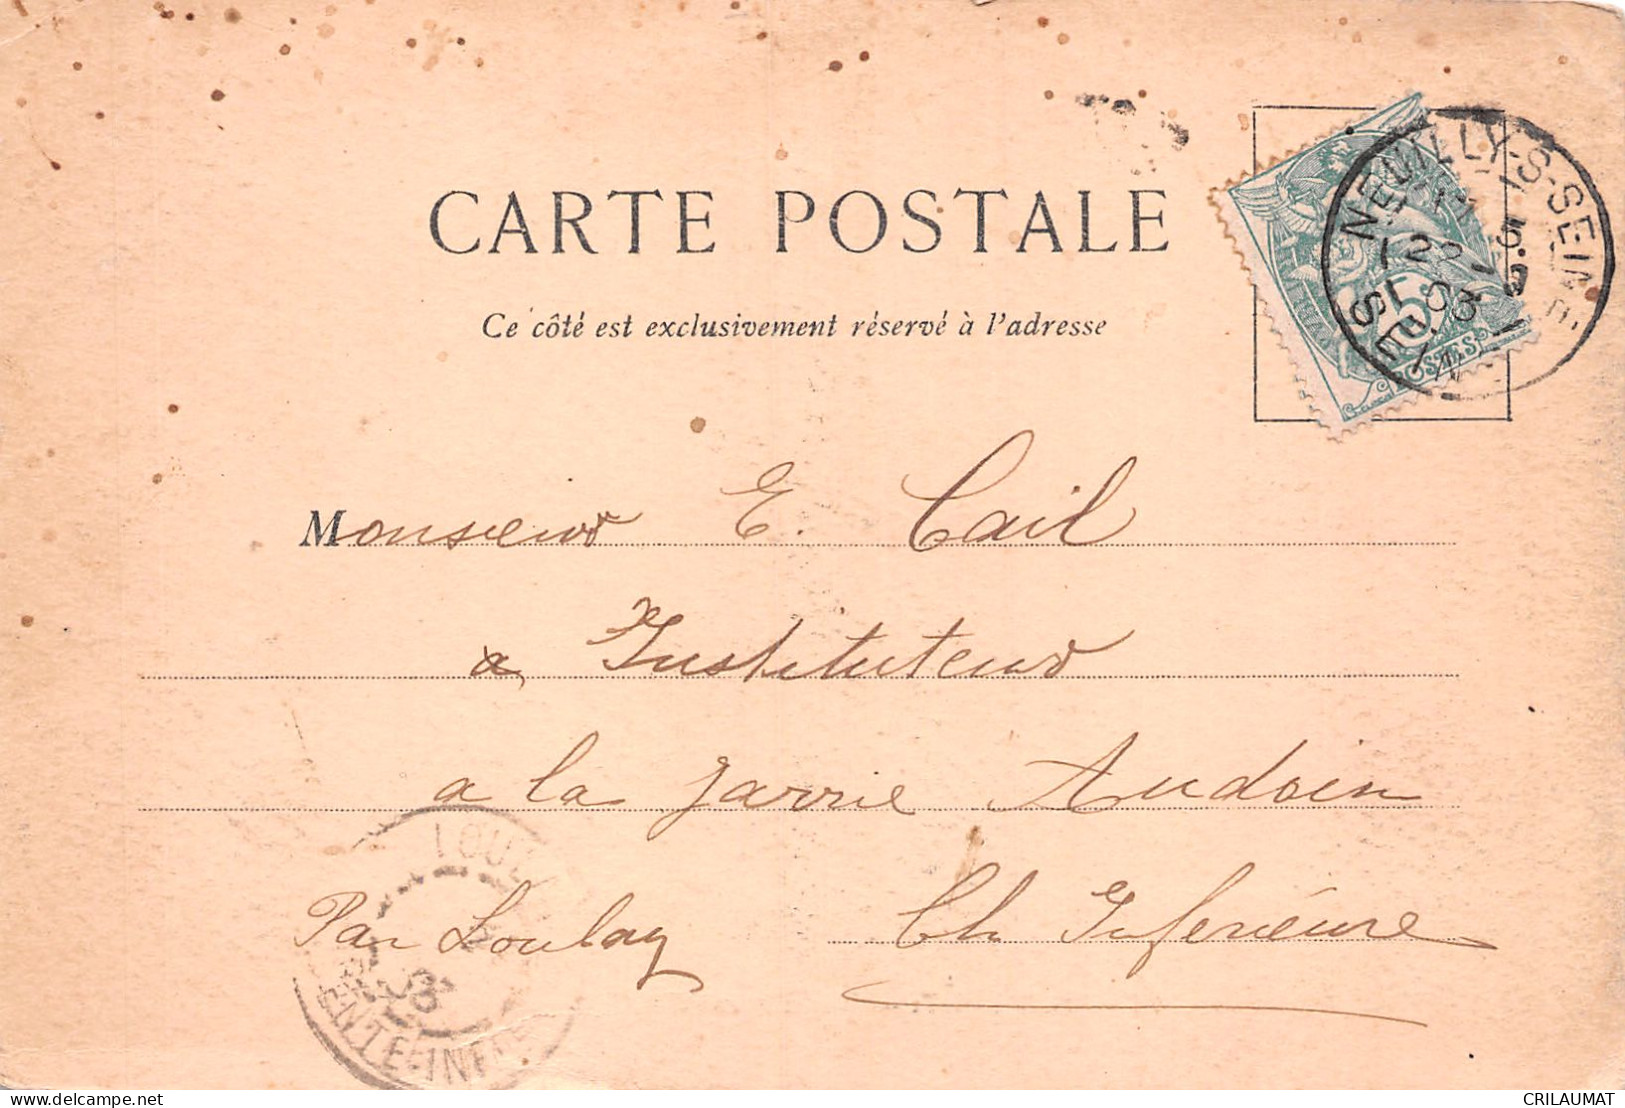 CARTE POSTALE
Ce côté est exclusivement réservé à l'adresse
NEUILLY-S-SEINE
22
03
SEINE
5
POSTES
Monsieur E. Cail
a Instituteur
a la Jarrie Audouin
Par Loulay Ch Inferieure
LOUL
03
ENTE-INF
delcampe.net
CRILAUMAT